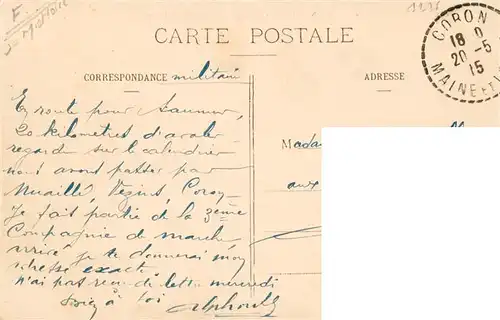 F.
CARTE POSTALE
CORRESPONDANCE militaire
ADRESSE
CORON
18
20-5
15
MAINE ET
En route pour Saumur,
20 kilomètres d'avaler
regarde sur le calendrier
nous avons passer par
Nuaillé, Vezins, Coron
Je fait partie de la 3eme
Compagnie de marche
arrivé je te donnerai mon
adresse exacte
n'ai pas reçu de lettre mercredi
à toi Alphonse
Mada
aux